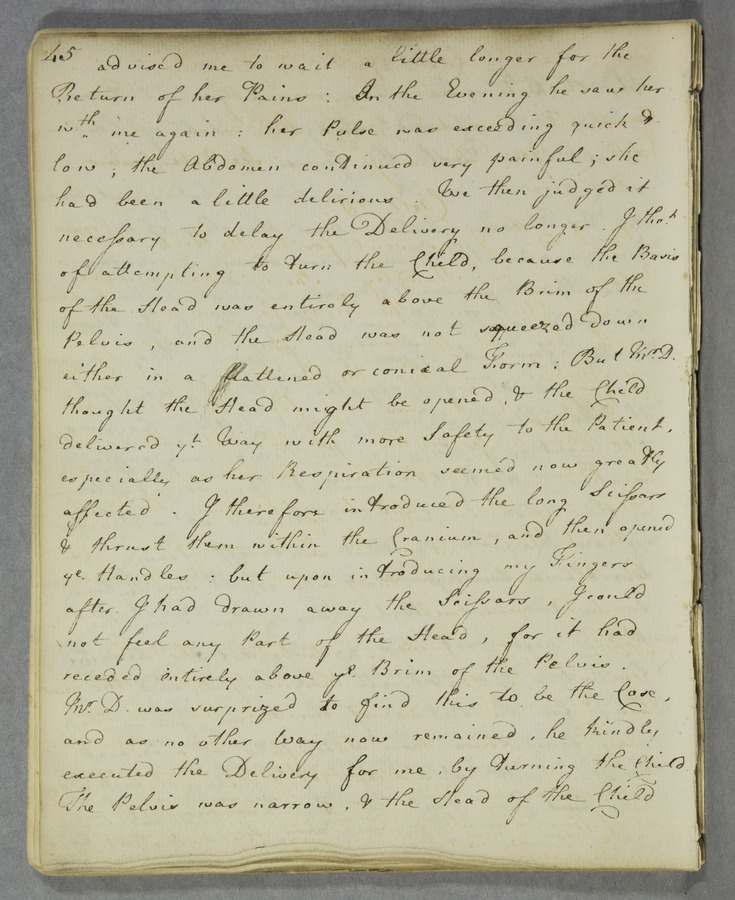 45 advised me to wait a little longer for the
Return of her Pains : In the Evening he saw her
wth. me again : her Pulse was exceeding quick &
low ; the Abdomen continued very painful ; she
had been a little delirious . We then judged it
necessary to delay the Delivery no longer . I thot.
of attempting to turn the Child, because the Basis
of the Head was entirely above the Brim of the
Pelvis , and the Head was not squeezed down
either in a flattened or conical Form ; But Mr. D.
thought the Head might be opened , & the Child
delivered yt. Way with more Safety to the Patient ,
especially as her Respiration seemed now greatly
affected . I therefore introduced the long Scissars
& thrust them within the Cranium , and then opened
ye. Handles : but upon introducing my Fingers
after I had drawn away the Scissars , I could
not feel any Part of the Head , for it had
receded intirely above ye. Brim of the Pelvis .
Mr. D. was surprized to find this to be the Case ,
and as no other Way now remained , he kindly
executed the Delivery for me , by turning the Child
The Pelvis was narrow , & the Head of the Child